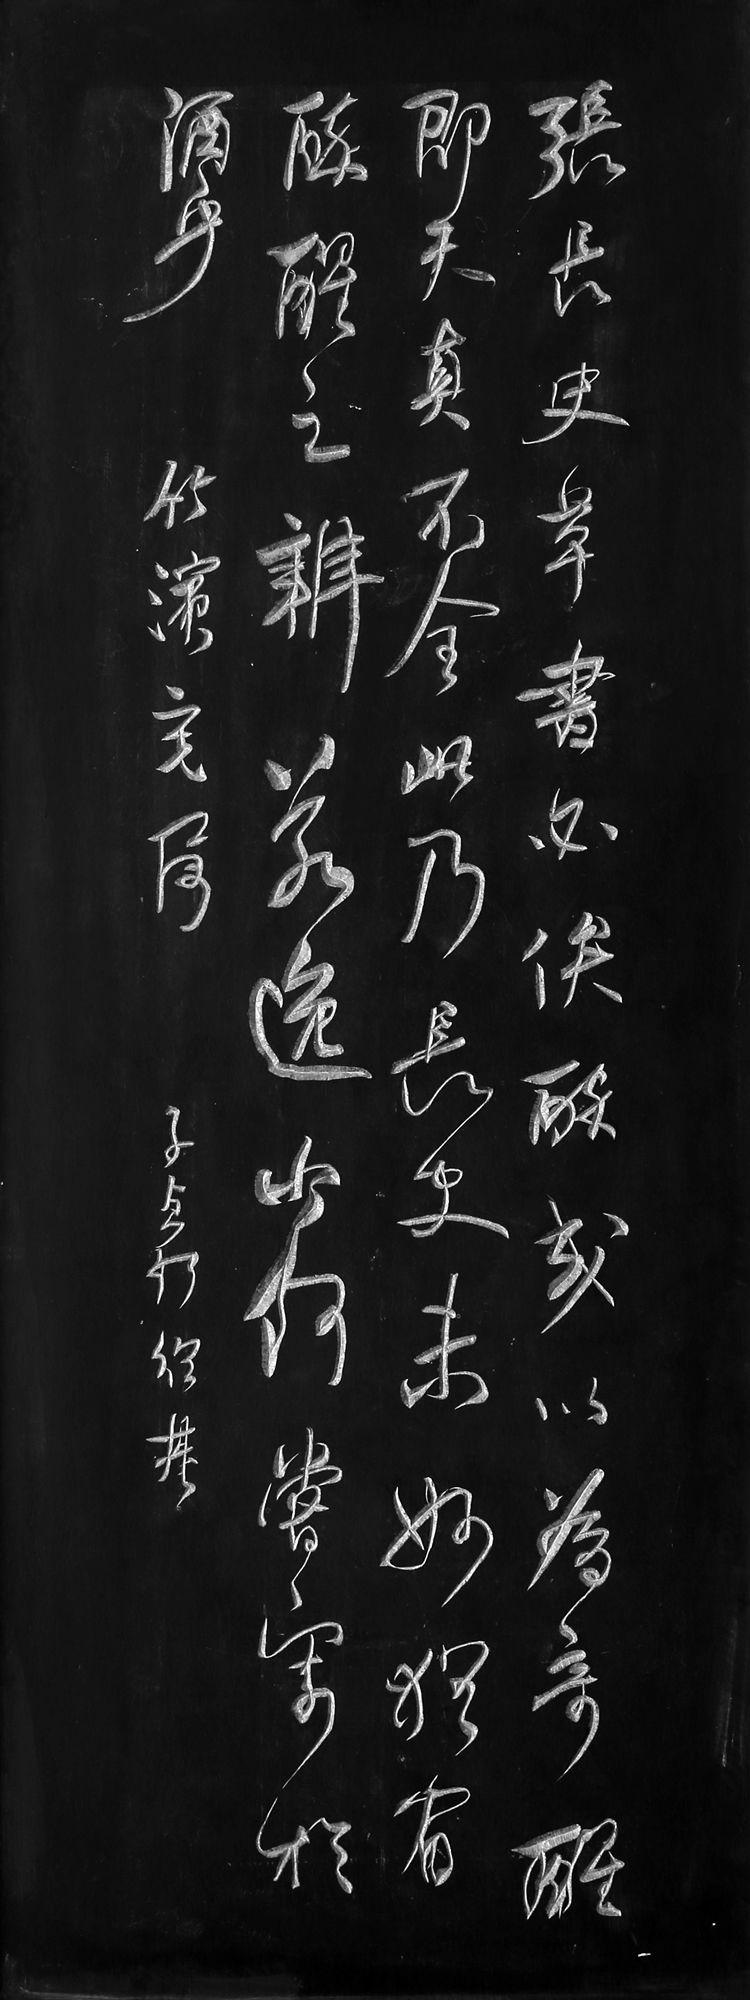 張長史草書必俟醉或以為奇醒
即天真不全此乃長史未妙猶有
醉醒之辨若逸少何嘗寄於
酒乎 竹濱屬 子貞何紹基